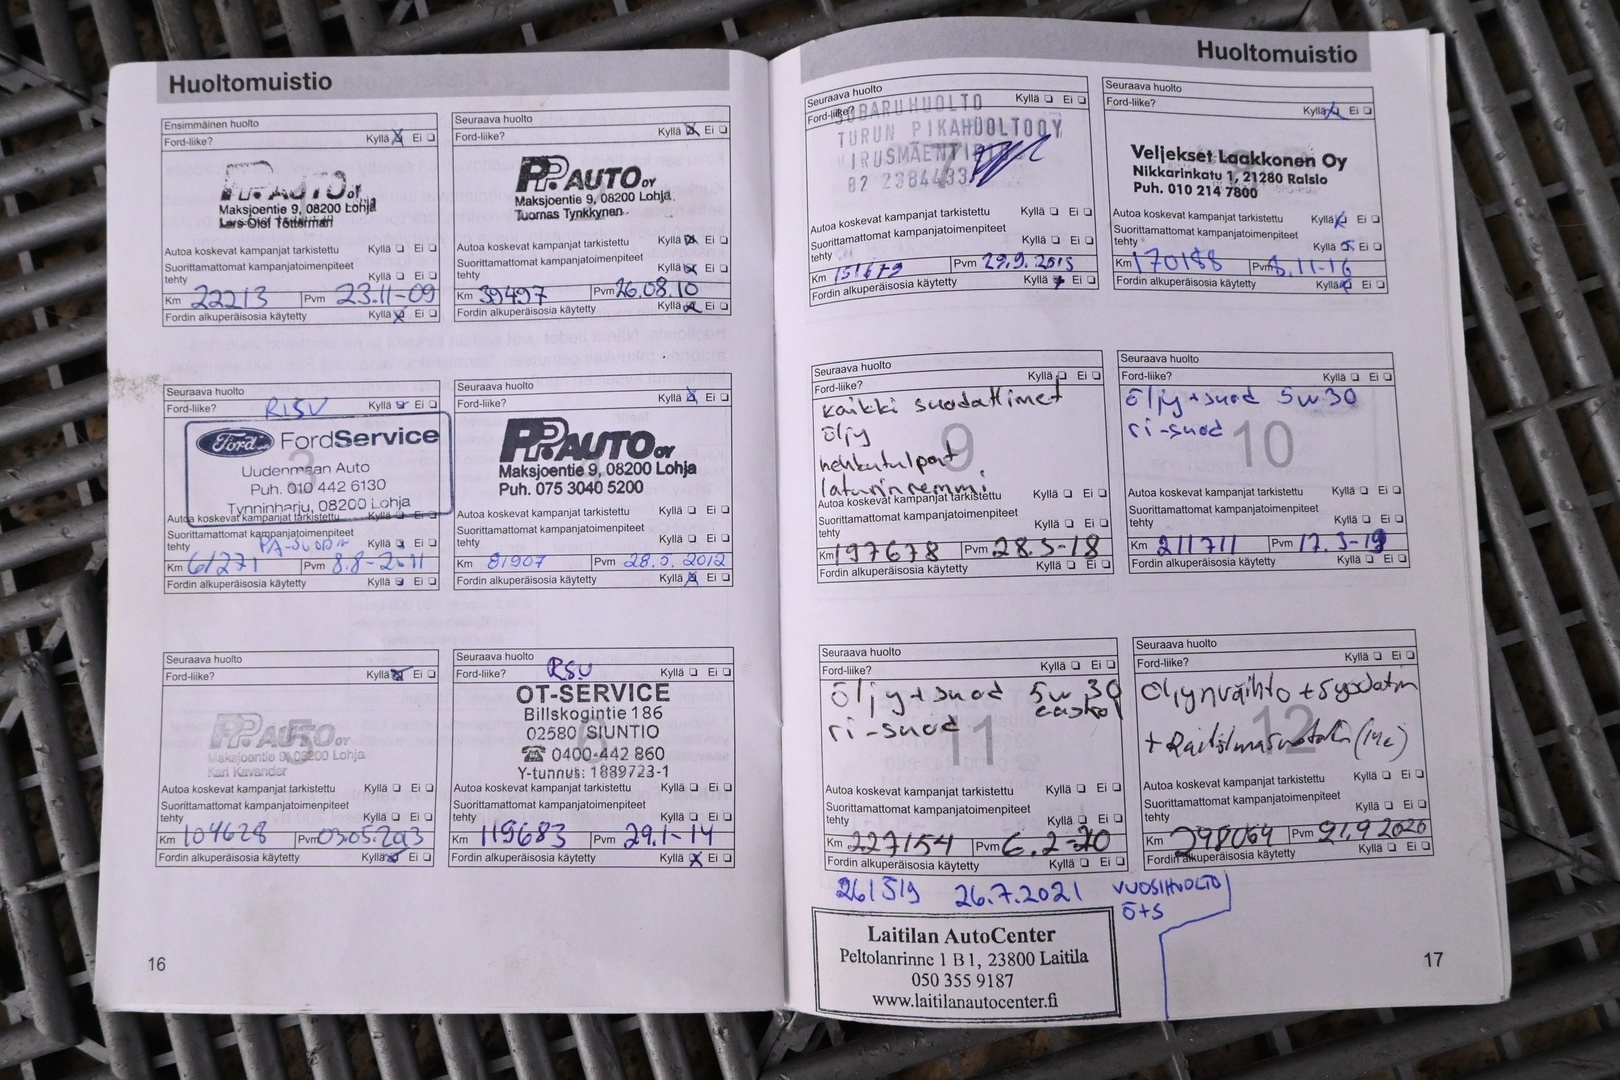 Huoltomuistio
Ensimmäinen huolto
Ford-liike? Kyllä Ei
PP.AUTO OY
Maksjoentie 9, 08200 Lohja
Lars-Olof Tötterman
Autoa koskevat kampanjat tarkistettu Kyllä Ei
Suorittamattomat kampanjatoimenpiteet
tehty Kyllä Ei
Km 22213 Pvm 23.11-09
Fordin alkuperäisosia käytetty Kyllä Ei
Seuraava huolto
Ford-liike? Kyllä Ei
PP.AUTO OY
Maksjoentie 9, 08200 Lohja
Tuomas Tynkkynen
Autoa koskevat kampanjat tarkistettu Kyllä Ei
Suorittamattomat kampanjatoimenpiteet
tehty Kyllä Ei
Km 39497 Pvm 26.08.10
Fordin alkuperäisosia käytetty Kyllä Ei
Seuraava huolto
Ford-liike? Kyllä Ei
3
Ford FordService
Uudenmaan Auto
Puh. 010 442 6130
Tynninharju, 08200 Lohja
Autoa koskevat kampanjat tarkistettu Kyllä Ei
Suorittamattomat kampanjatoimenpiteet
tehty Kyllä Ei
Km 61271 Pvm 8.8-2011
Fordin alkuperäisosia käytetty Kyllä Ei
Seuraava huolto
Ford-liike? Kyllä Ei
PP.AUTO OY
Maksjoentie 9, 08200 Lohja
Puh. 075 3040 5200
Autoa koskevat kampanjat tarkistettu Kyllä Ei
Suorittamattomat kampanjatoimenpiteet
tehty Kyllä Ei
Km 81907 Pvm 28.5.2012
Fordin alkuperäisosia käytetty Kyllä Ei
Seuraava huolto
Ford-liike? Kyllä Ei
5
PP.AUTO OY
Maksjoentie 9, 08200 Lohja
Kari Kavander
Autoa koskevat kampanjat tarkistettu Kyllä Ei
Suorittamattomat kampanjatoimenpiteet
tehty Kyllä Ei
Km 104628 Pvm 03.05.2013
Fordin alkuperäisosia käytetty Kyllä Ei
Seuraava huolto
Ford-liike? RSU Kyllä Ei
OT-SERVICE
Billskogintie 186
02580 SIUNTIO
☎ 0400-442 860
Y-tunnus: 1889723-1
Autoa koskevat kampanjat tarkistettu Kyllä Ei
Suorittamattomat kampanjatoimenpiteet
tehty Kyllä Ei
Km 119683 Pvm 29.1-14
Fordin alkuperäisosia käytetty Kyllä Ei
16
Huoltomuistio
Seuraava huolto
Ford-liike? Kyllä Ei
SUBARUHUOLTO
TURUN PIKAHUOLTO OY
VIRUSMÄENTIE
02 2384433
Autoa koskevat kampanjat tarkistettu Kyllä Ei
Suorittamattomat kampanjatoimenpiteet
tehty Kyllä Ei
Km 151679 Pvm 29.9.2015
Fordin alkuperäisosia käytetty Kyllä Ei
Seuraava huolto
Ford-liike? Kyllä Ei
Veljekset Laakkonen Oy
Nikkarinkatu 1, 21280 Raisio
Puh. 010 214 7800
Autoa koskevat kampanjat tarkistettu Kyllä Ei
Suorittamattomat kampanjatoimenpiteet
tehty Kyllä Ei
Km 170188 Pvm 8.11-16
Fordin alkuperäisosia käytetty Kyllä Ei
Seuraava huolto
Ford-liike? Kyllä Ei
9
kaikki suodattimet
öljy
hehkutulpat
laturin remmi
Autoa koskevat kampanjat tarkistettu Kyllä Ei
Suorittamattomat kampanjatoimenpiteet
tehty Kyllä Ei
Km 197678 Pvm 28.5-18
Fordin alkuperäisosia käytetty Kyllä Ei
Seuraava huolto
Ford-liike? Kyllä Ei
10
öljy+suod 5w30
ri-suod
Autoa koskevat kampanjat tarkistettu Kyllä Ei
Suorittamattomat kampanjatoimenpiteet
tehty Kyllä Ei
Km 211711 Pvm 17.3-19
Fordin alkuperäisosia käytetty Kyllä Ei
Seuraava huolto
Ford-liike? Kyllä Ei
11
öljy+suod 5w30
castrol
ri-suod
Autoa koskevat kampanjat tarkistettu Kyllä Ei
Suorittamattomat kampanjatoimenpiteet
tehty Kyllä Ei
Km 227154 Pvm 6.2-20
Fordin alkuperäisosia käytetty Kyllä Ei
Seuraava huolto
Ford-liike? Kyllä Ei
12
Öljynvaihto + Syodatin
+ Raitisilmasuodatin
Autoa koskevat kampanjat tarkistettu Kyllä Ei
Suorittamattomat kampanjatoimenpiteet
tehty Kyllä Ei
Km 248064 Pvm 21.9.2020
Fordin alkuperäisosia käytetty Kyllä Ei
261519 26.7.2021 VUOSIHUOLTO
Ö+S
Laitilan AutoCenter
Peltolanrinne 1 B 1, 23800 Laitila
050 355 9187
www.laitilanautocenter.fi
17